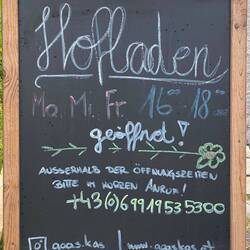 Hofladen
Mo. Mi. Fr. 16⁰⁰-18⁰⁰ UHR
geöffnet!
AUSSERHALB DER ÖFFNUNGSZEITEN
BITTE UM KURZEN ANRUF!
+43(0)69919535300
goas.kas | www.goaskas.at